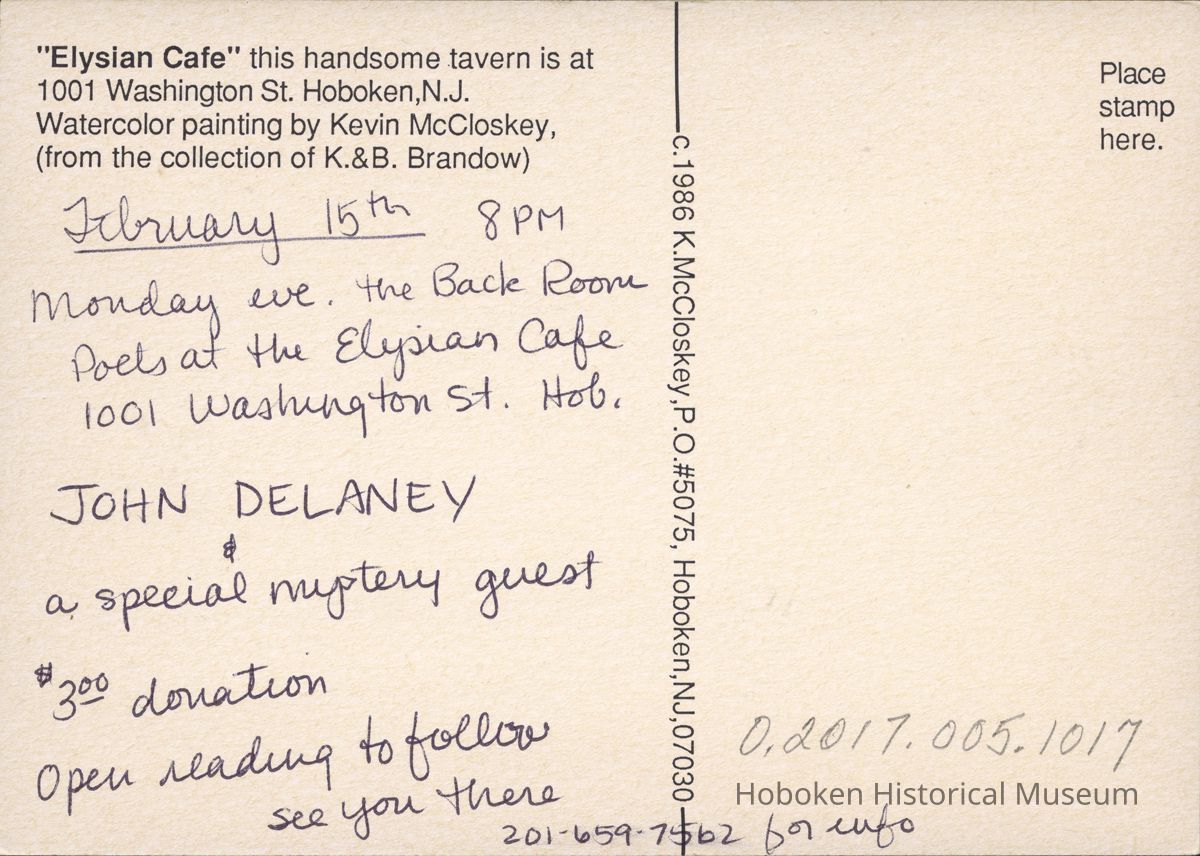 "Elysian Cafe" this handsome tavern is at
1001 Washington St. Hoboken,N.J.
Watercolor painting by Kevin McCloskey,
(from the collection of K.&B. Brandow)
February 15th 8 PM
Monday eve. the Back Room
Poets at the Elysian Cafe
1001 Washington St. Hob.
JOHN DELANEY
&
a special mystery guest
$3.00 donation
Open reading to follow
see you there
201-659-7562 for info
c.1986 K.McCloskey,P.O.#5075, Hoboken,NJ,07030
Place
stamp
here.
0.2017.005.1017
Hoboken Historical Museum